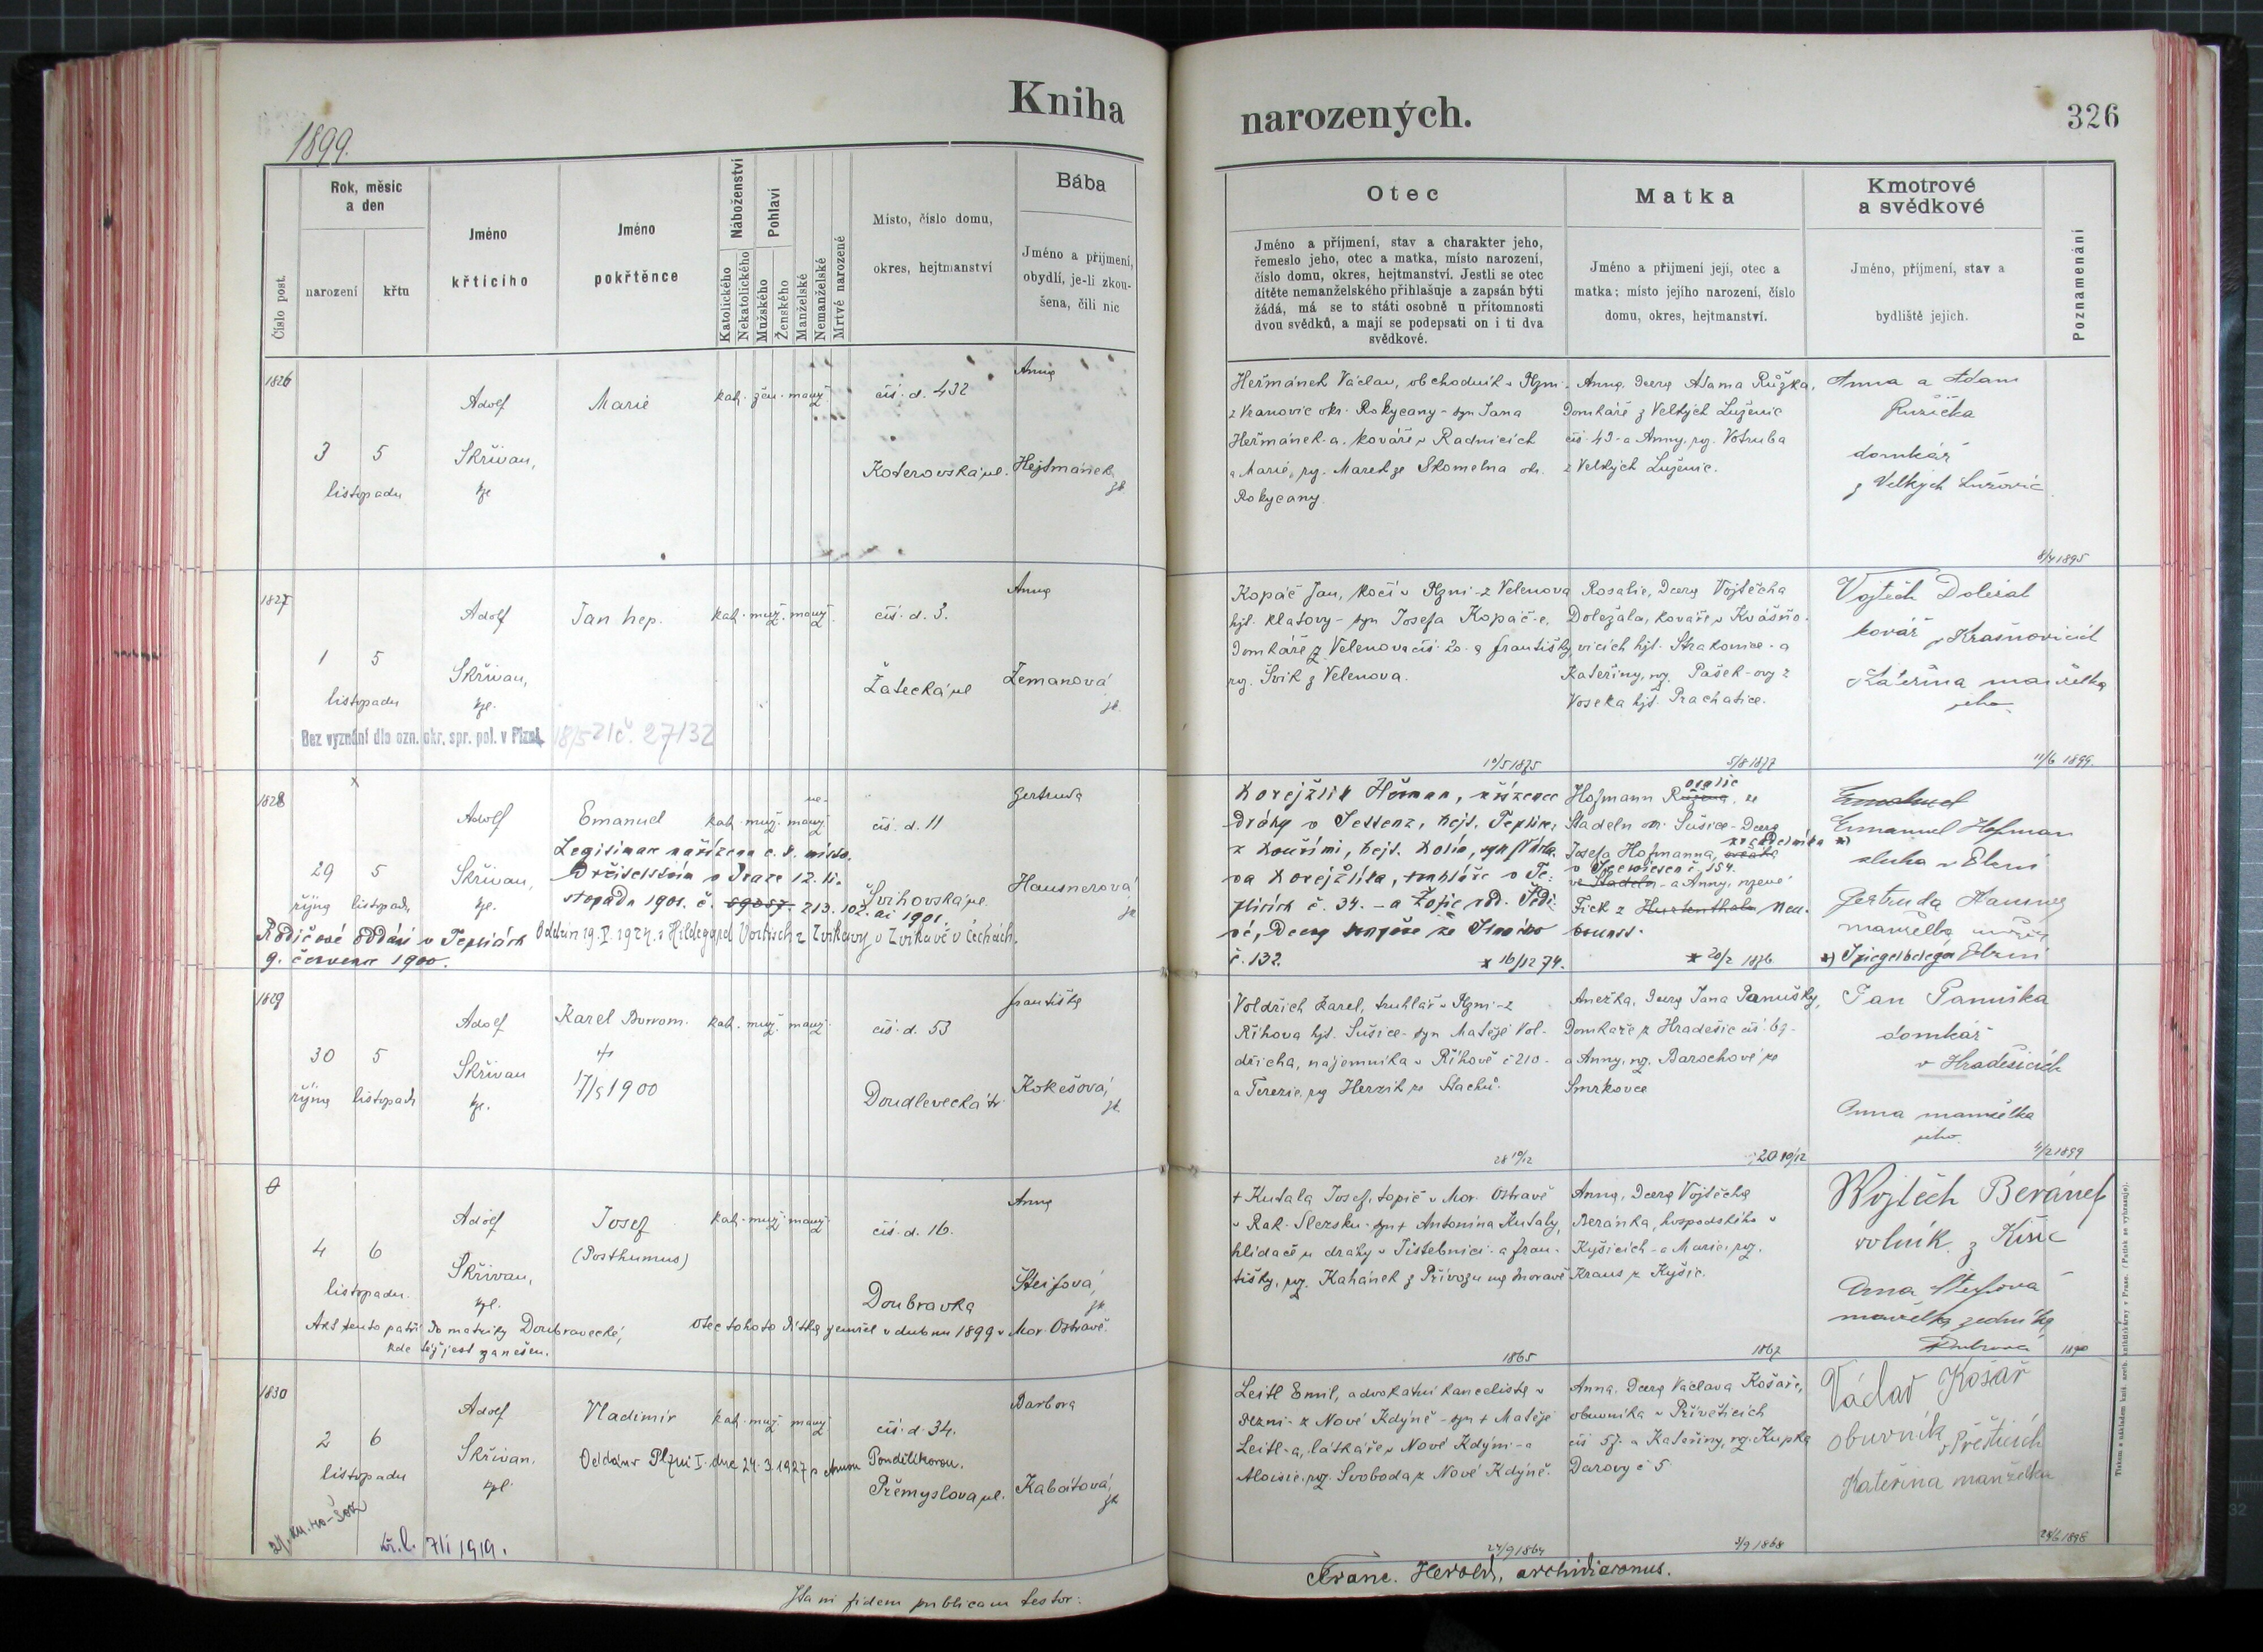 Kniha
narozených.
326
1899.
Číslo post.
Rok, měsíc
a den
narození
křtu
Jméno
křtícího
Jméno
pokřtěnce
Náboženství
Katolického
Nekatolického
Pohlaví
Mužského
Ženského
Manželské
Nemanželské
Mrtvě narozené
Místo, číslo domu,
okres, hejtmanství
Bába
Jméno a příjmení,
obydlí, je-li zkou-
šena, čili nic
Otec
Jméno a příjmení, stav a charakter jeho,
řemeslo jeho, otec a matka, místo narození,
číslo domu, okres, hejtmanství. Jestli se otec
dítěte nemanželského přihlašuje a zapsán býti
žádá, má se to státi osobně u přítomnosti
dvou svědků, a mají se podepsati on i ti dva
svědkové.
Matka
Jméno a příjmení její, otec a
matka; místo jejího narození, číslo
domu, okres, hejtmanství.
Kmotrové
a svědkové
Jméno, příjmení, stav a
bydliště jejich.
Poznamenání
1826
3 5
listopadu
Adolf
Skřivan,
kpl.
Marie
kat. žen. manž.
čís. d. 432
Koterovská ul.
Anna
Hejtmánek
zk.
Heřmánek Václav, obchodník v Plzni
z Vranovic okr. Rokycany - syn Jana
Heřmánek-a, kováře v Radnicích
a Marie, roz. Mareš ze Skomelna okr.
Rokycany.
Anna, dcera Adama Růžka,
domkáře z Velkých Luženic
čís. 43 - a Anny, roz. Votruba
z Velkých Luženic.
Anna a Adam
Růžička
domkář
z Velkých Lužovic
8/4 1895
1827
1 5
listopadu
Adolf
Skřivan,
kpl.
Jan Nep.
kat. muž. manž.
čís. d. 3.
Žatecká ul
Anna
Zemanová
zk.
Bez vyznání dle ozn. okr. spr. pol. v Plzni 18/5 21 č. 27132
Kopáč Jan, kočí v Plzni - z Velenova
hjt. Klatovy - syn Josefa Kopáč-e,
domkáře z Velenova čís. 20 - a Františky
roz. Švik z Velenova.
10/5 1875
Rosalie, dcera Vojtěcha
Doležala, kováře v Kvášňo-
vicích hjt. Strakonice - a
Kateřiny, roz. Pašek-ovy z
Voseka hjt. Prachatice.
5/8 1877
Vojtěch Doležal
kovář v Krašňovicích
Kateřina manželka
jeho
11/6 1899.
1828
x
29 5
října listopadu
Adolf
Skřivan,
kpl.
Emanuel
kat. muž. manž.
ne-
čís. d. 11
Švihovská ul.
Gertruda
Hausnerová
zk
Legitimace nařízena c. k. místo-
držitelstvím v Praze 12. li-
stopadu 1901. č. 213.102
ai 1901.
Rodičové oddáni v Teplicích
9. července 1900.
Oddán 19. I. 1924. s Hildegard Vortisch z Zvikavy v Zvikavě v Čechách.
Korejžlík Heřman, zřízenec
dráhy v Settenz, hejt. Teplice,
z Kouřimi, hejt. Kolín, syn Václa-
va Korejžlíka, truhláře v Te-
plicích č. 34. - a Žofie rod. Šedi-
vé, dcery
č. 132.
* 16/12 74.
Hofmann Rosalie, ze
Stadeln okr. Sušice - dcera
Josefa Hofmanna,
v č. 154.
a Anny, rozené
Fick z Neu-
brunst.
* 20/2 1876
Emanuel Hofman
sluha v Plzni
Gertruda Hausner
manželka
1829
30 5
října listopadu
Adolf
Skřivan
kpl.
Karel Borrom.
†
17/5 1900
kat. muž. manž.
čís. d. 53
Doudlevecká tř.
Františka
Kokešová,
zk.
Voldřich Karel, truhlář v Plzni - z
Říhova hjt. Sušice - syn Matěje Vol-
dřicha, nájemníka v Říhově č 210 -
a Terezie, roz. Herzik ze Stachů.
28 10/12
Anežka, dcera Jana Panušky,
domkáře z Hradešic čís. 69 -
a Anny, roz. Barochové ze
Smrkovce
20 10/12
Jan Panuška
domkář
v Hradešicích
Anna manželka
jeho
4/2 1899
4 6
listopadu
Adolf
Skřivan,
kpl.
Josef
(Posthumus)
kat. muž. manž.
čís. d. 16.
Doubravka
Anna
Šteifová,
zk.
Akt tento patří do matriky Doubravecké,
kde též jest zanešen.
Otec tohoto dítka zemřel v dubnu 1899 v Mor. Ostravě.
† Kutala Josef, topič v Mor. Ostravě
v Rak. Slezsku - syn † Antonína Kutaly,
hlídače u dráhy v Jistebníci - a Fran-
tišky, roz. Kahánek z Přívozu na Moravě
1865
Anna, dcera Vojtěcha
Beránka, hospodského v
Kyšicích - a Marie, roz.
Kraus z Kyšic.
1867
Wojtěch Beránek
rolník z Kišic
Ana Steifova
manželka zedníka
1890
1830
2 6
listopadu
Adolf
Skřivan,
kpl.
Vladimír
kat. muž. manž.
čís. d. 34.
Přemyslova ul.
Barbora
Kabátová,
zk
Oddán v Plzni I. dne 24. 3. 1927 s Annou Pondělíkovou.
7/I 1919.
Leitl Emil, advokátní kancelista v
Plzni - z Nové Kdyně - syn † Matěje
Leitl-a, látkaře v Nové Kdyni - a
Aloisie, roz. Svoboda z Nové Kdyně.
27/9 1864
Anna, dcera Václava Košaře,
obuvníka v Přívěticích
čís 57. a Kateřiny, roz. Kupka
Darovy č 5
3/9 1868
Václav Košař
obuvník v Přešticích
Kateřina manželka
28/6 1898
Ita in fidem publicam testor:
Franc. Herold, archidiaconus.